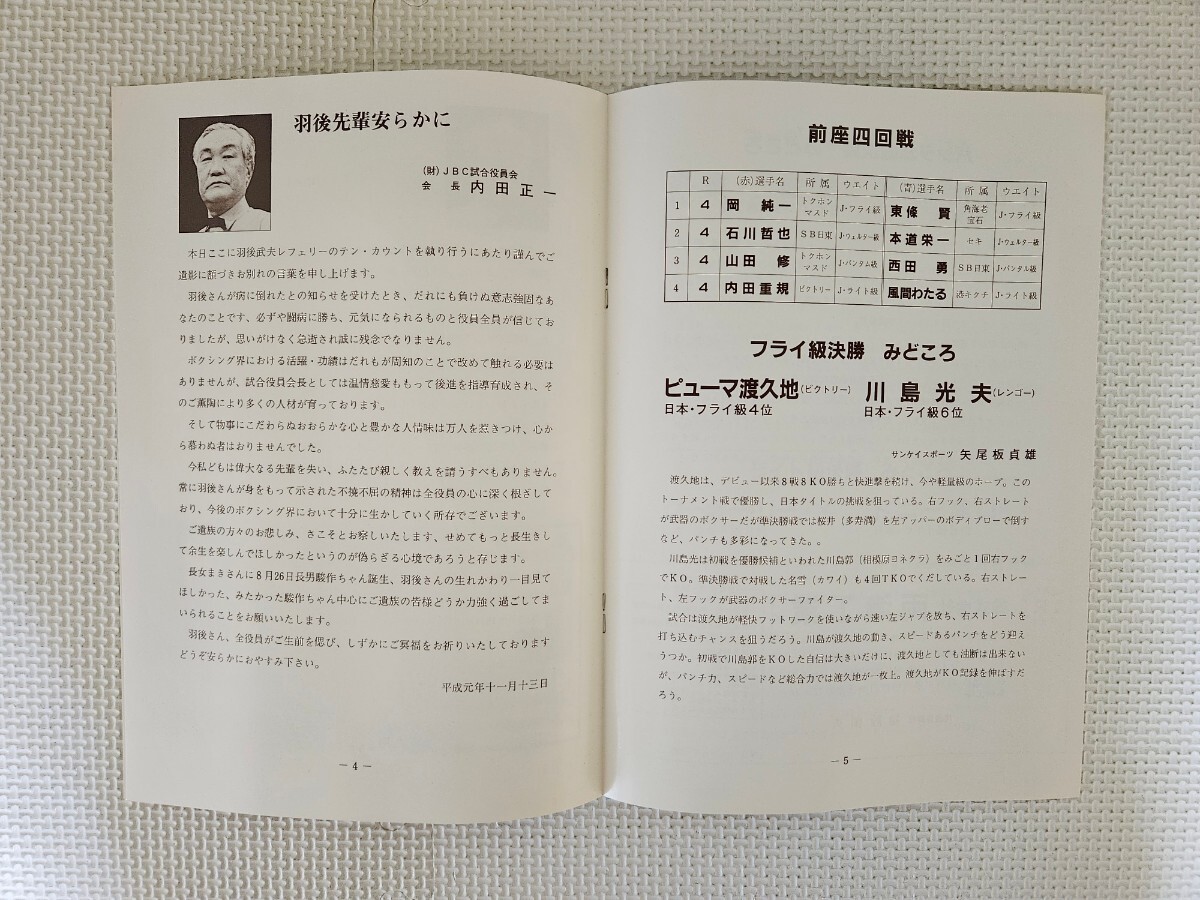 羽後先輩安らかに
(財)JBC試合役員会
会 長 内田正一
本日ここに羽後武夫レフェリーのテン・カウントを執り行うにあたり謹んでご
遺影に額づきお別れの言葉を申し上げます。
羽後さんが病に倒れたとの知らせを受けたとき、だれにも負けぬ意志強固なあ
なたのことです、必ずや闘病に勝ち、元気になられるものと役員全員が信じてお
りましたが、思いがけなく急逝され誠に残念でなりません。
ボクシング界における活躍・功績はだれもが周知のことで改めて触れる必要は
ありませんが、試合役員会長としては温情慈愛ももって後進を指導育成され、そ
のご薫陶により多くの人材が育っております。
そして物事にこだわらぬおおらかな心と豊かな人情味は万人を惹きつけ、心か
ら慕わぬ者はおりませんでした。
今私どもは偉大なる先輩を失い、ふたたび親しく教えを請うすべもありません。
常に羽後さんが身をもって示された不撓不屈の精神は全役員の心に深く根ざして
おり、今後のボクシング界において十分に生かしていく所存でございます。
ご遺族の方々のお悲しみ、さこそとお察しいたします、せめてもっと長生きし
て余生を楽しんでほしかったというのが偽らざる心境であろうと存じます。
長女まきさんに8月26日長男駿作ちゃん誕生、羽後さんの生れかわり一目見て
ほしかった、みたかった駿作ちゃん中心にご遺族の皆様どうか力強く過ごしてま
いられることをお願いいたします。
羽後さん、全役員がご生前を偲び、しずかにご冥福をお祈りいたしております
どうぞ安らかにおやすみ下さい。
平成元年十一月十三日
— 4 —
前座四回戦
R (赤)選手名 所属 ウエイト (青)選手名 所属 ウエイト
1 4 岡 純一 トクホンマスド J・フライ級 東條 賢 角海老宝石 J・フライ級
2 4 石川哲也 SB日東 J・ウェルター級 本道栄一 セキ J・ウェルター級
3 4 山田 修 トクホンマスド J・バンタム級 西田 勇 SB日東 J・バンタム級
4 4 内田重規 ビクトリー J・ライト級 風間わたる 港キクチ J・ライト級
フライ級決勝 みどころ
ピューマ渡久地(ビクトリー) 川島光夫(レンゴー)
日本・フライ級4位 日本・フライ級6位
サンケイスポーツ 矢尾板貞雄
渡久地は、デビュー以来8戦8KO勝ちと快進撃を続け、今や軽量級のホープ。この
トーナメント戦で優勝し、日本タイトルの挑戦を狙っている。右フック、右ストレート
が武器のボクサーだが準決勝戦では桜井(多寿満)を左アッパーのボディブローで倒す
など、パンチも多彩になってきた。。
川島光は初戦を優勝候補といわれた川島郭(相模原ヨネクラ)をみごと1回右フック
でKO。準決勝戦で対戦した名雪(カワイ)も4回TKOでくだしている。右ストレー
ト、左フックが武器のボクサーファイター。
試合は渡久地が軽快フットワークを使いながら速い左ジャブを放ち、右ストレートを
打ち込むチャンスを狙うだろう。川島が渡久地の動き、スピードあるパンチをどう迎え
うつか。初戦で川島郭をKOした自信は大きいだけに、渡久地としても油断は出来ない
が、パンチ力、スピードなど総合力では渡久地が一枚上。渡久地がKO記録を伸ばすだ
ろう。
— 5 —